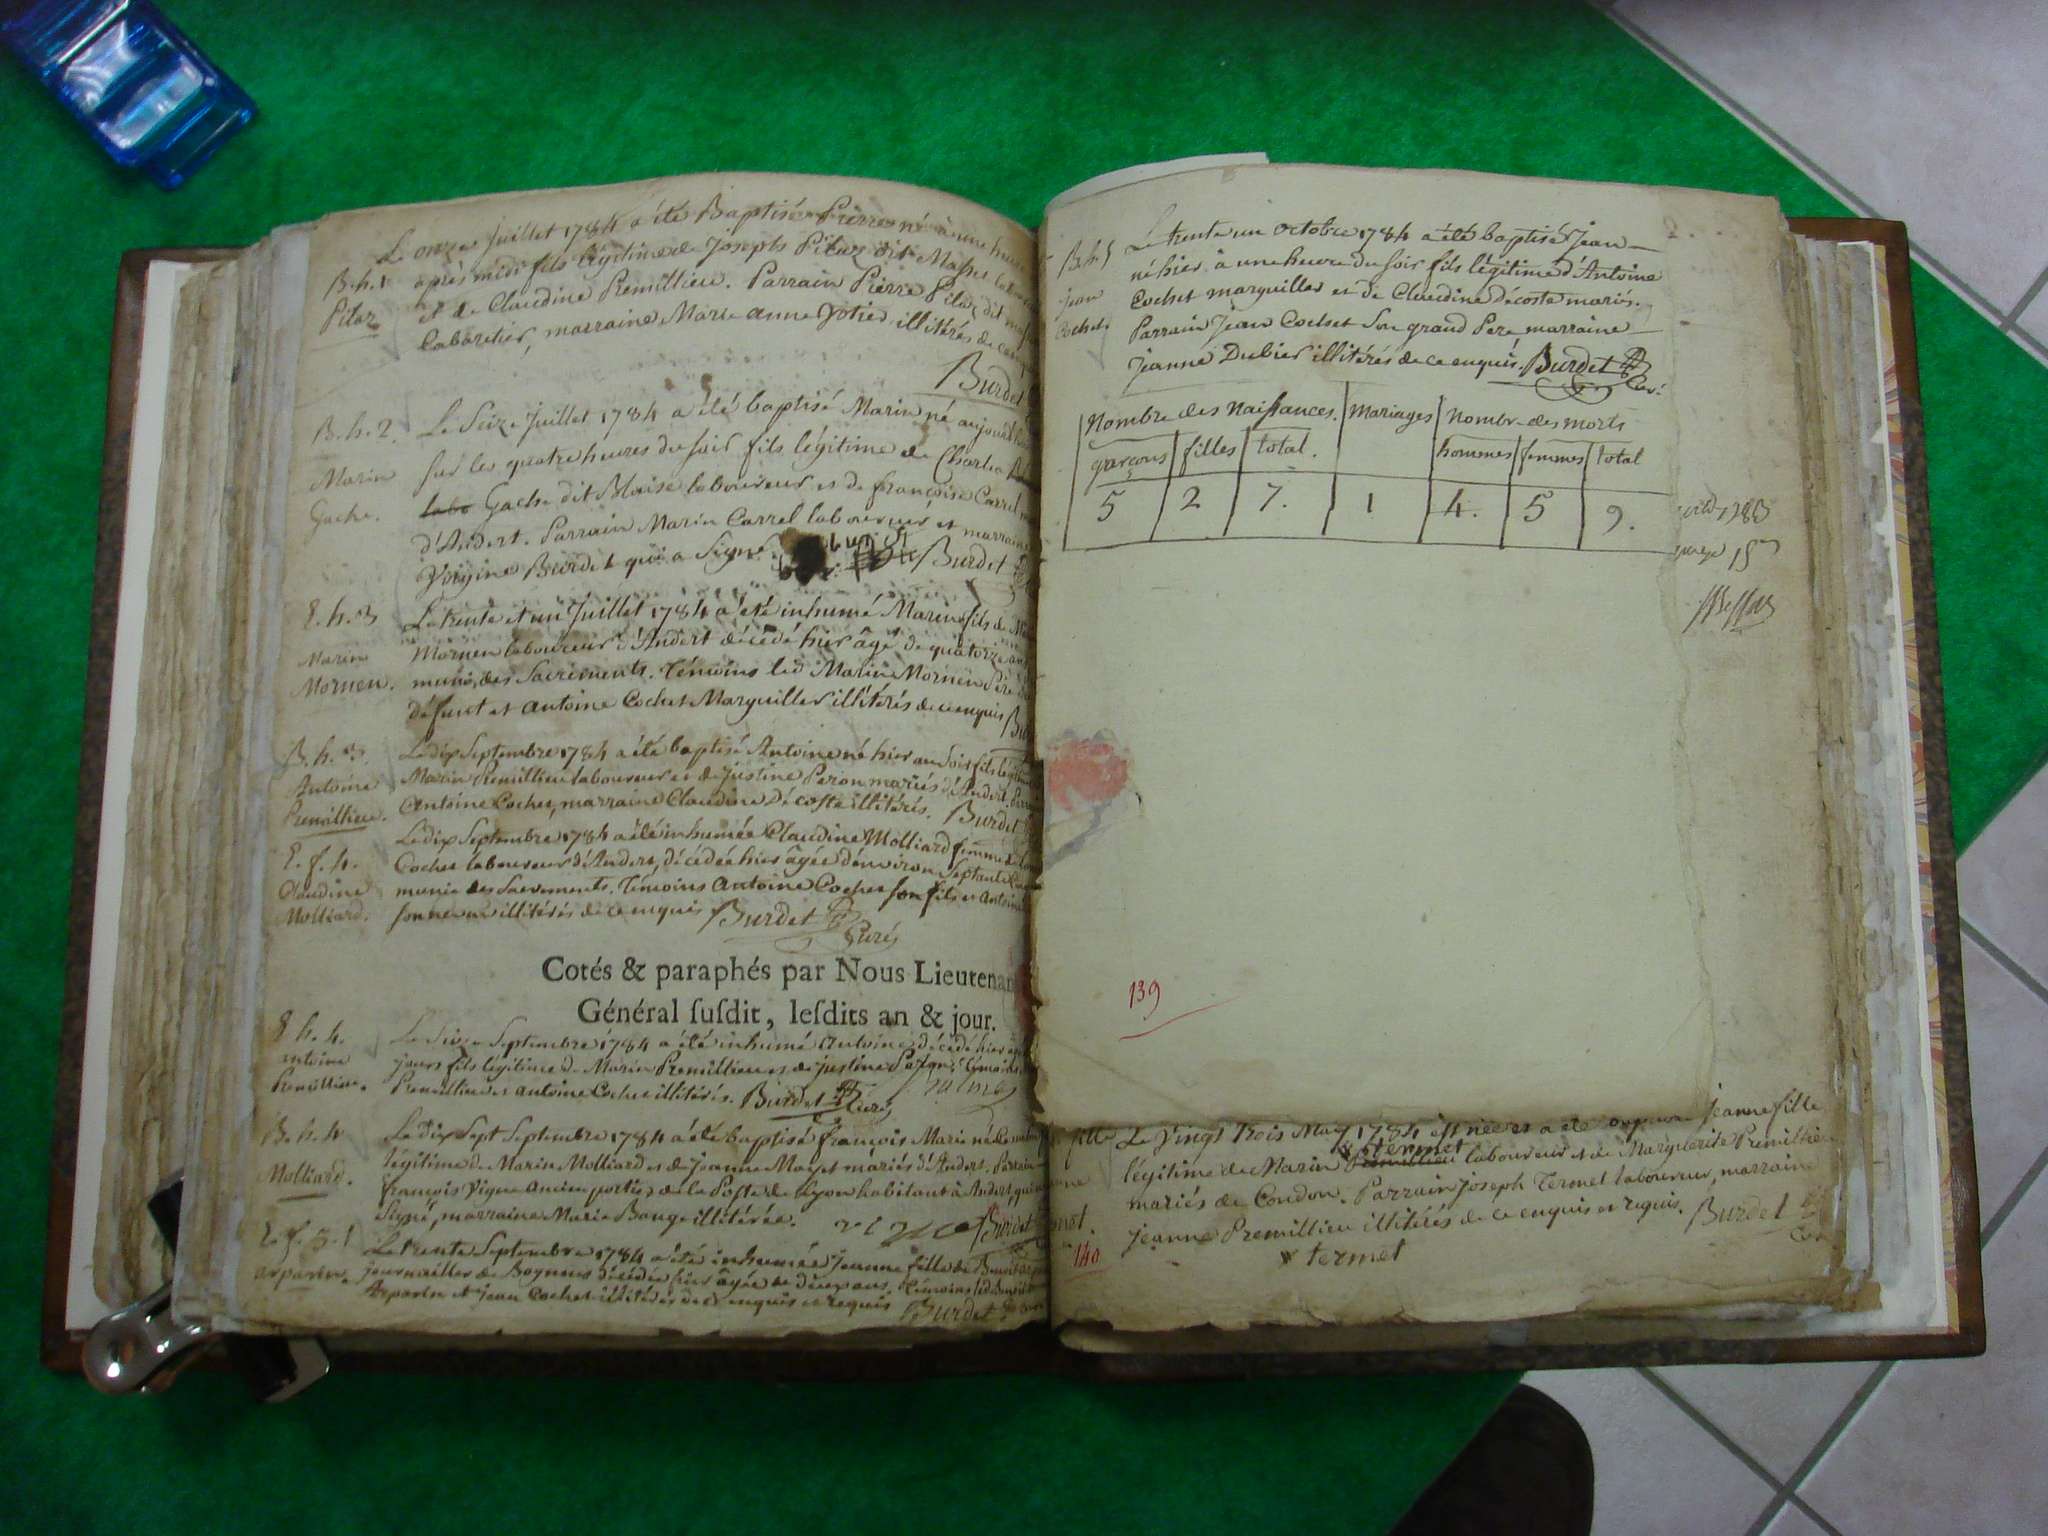 Le onze Juillet 1784 a été Baptisé Pierre né à une heure
B. h. 1 après midi fils légitime de Joseph Pitaz dit Masset
Pitaz et de Claudine Premillieu. Parrain Pierre Pitaz dit
Cabaretier, marraine Marie anne illitérés de
Burdet
B. h. 2. Le Seize Juillet 1784 a été baptisé Marin né aujourd'hui
Marin sur les quatre heures du soir fils légitime de Charles
Gache. labo Gache dit Blaise laboureur et de françoise Carrel
d'Andert. Parrain Marin Carrel laboureur et marraine
Burdet qui a Signé. Burdet
S. h. 3 Le trente et un Juillet 1784 a été inhumé Marin fils de
Marin Mornen laboureur d'Andert décédé hier âgé de quatorze ans
Mornen. muni des Sacrements. Témoins led Marin Mornen Père
défunt et Antoine Cochet Marguiller illitérés de ce enquis
B. h. 3. Le dix Septembre 1784 a été baptisé Antoine né hier au soir fils légitime
Antoine Marin Premillieu laboureur et de Justine Peron mariés d'Andert.
Premillieu. Antoine Cochet, marraine Claudine Décoste illitérés. Burdet
Le dix Septembre 1784 a été inhumée Claudine Molliard femme
S. f. 4. Cochet laboureur d'Andert, décédée hier âgée d'environ Septante
Claudine munie des Sacrements. Témoins Antoine Cochet son fils et Antoine
Molliard. son neveu illitérés de ce enquis Burdet
Curé
Cotés & paraphés par Nous Lieutenan
Général ſuſdit, leſdits an & jour.
S. h. 4. Le Septembre 1784 a été inhumé Antoine décédé hier
ntoine jours fils légitime de Marin Premillieu et de justine témoins
Premillieu. Premillieu et antoine Cochet illitérés. Burdet Curé
B. h. 4 Le dix Sept Septembre 1784 a été baptisé françois Marie né
légitime de Marin Molliard et de Jeanne mariés d'Andert. Parrain
Molliard. françois Vigne Ancien portier de la Poste de Lyon habitant à Andert, qui a
Signé, marraine Marie Bauge illitérée. Burdet
S. f. 5. Le trente Septembre 1784 a été inhumée Jeanne fille de Benoit
arparin journaillier de décédée hier âgée de deux ans. témoins led Benoit
Arparin et Jean Cochet illitérés de ce enquis et requis Burdet
B. h. 5 Le trente un octobre 1784 a été baptisé Jean
né hier à une heure du soir fils légitime d'Antoine
jean Cochet marguiller et de Claudine Décoste mariés.
Cochet Parrain Jean Cochet Son grand Pere, marraine
Jeanne Dubier illitérés de ce enquis. Burdet
Curé
Nombre des Naissances. mariages Nombre des morts
garçons filles total. hommes femmes total
5 2 7. 1 4. 5 9.
page 15
139
fille Le Vingt Trois May 1784 est née et a été Jeanne fille
x termet
légitime de Marin Premillieu laboureur et de Marguerite Premillieu
mariés de Coudon. Parrain Joseph Termet laboureur, marraine
Jeanne Premillieu illitérés de ce enquis et requis. Burdet
140 x termet